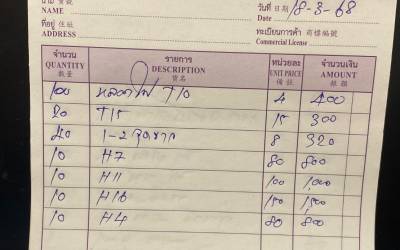 นาม 寶號 NAME วันที่ 日期 Date 18-3-68
ที่อยู่ 住址 ADDRESS ทะเบียนการค้า 商標編號 Commercial License
จำนวน รายการ หน่วยละ จำนวนเงิน
QUANTITY DESCRIPTION UNIT PRICE AMOUNT
數量 貨名 備註 銀額
100 หลอดไฟ T10 4 400
20 T15 15 300
40 1-2 จุดขาก 8 320
10 H7 80 800
10 H11 100 1,000
10 H16 150 1,500
10 H4 80 800